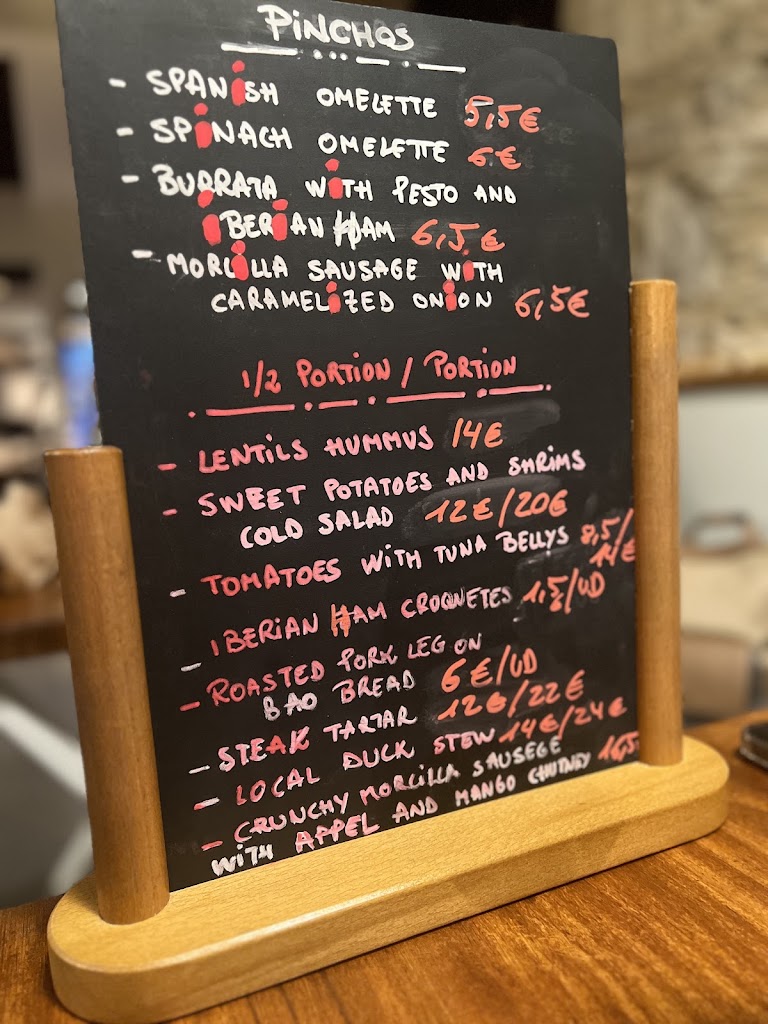 PiNCHOS
- SPANiSH OMELETTE 5,5€
- SPiNACH OMELETTE 6€
- BURRATA WiTH PESTO AND
iBERiAN HAM 6,5€
- MORCiLLA SAUSAGE WiTH
CARAMELiZED ONiON 6,5€
1/2 PORTiON / PORTiON
- LENTiLS HUMMUS 14€
- SWEET POTATOES AND SHRiMS
COLD SALAD 12€/20€
- TOMATOES WiTH TUNA BELLYS 8,5/
14€
- iBERiAN HAM CROQNETES 1,5/UD
- ROASTED PORK LEG ON
BAO BREAD 6€/UD
- STEAK TARTAR 12€/22€
- LOCAL DUCK STEW 14€/24€
- CRUNCHY MORCiLLA SAUSEGE
WiTH APPEL AND MANGO CHUTNEY